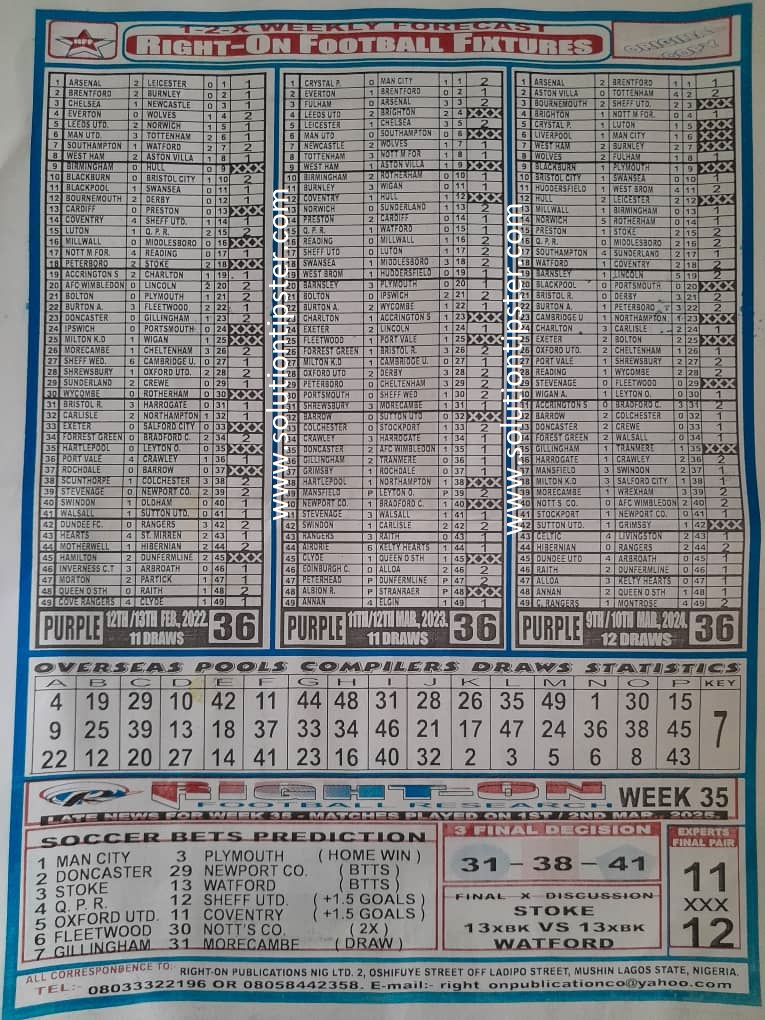 1-2-X WEEKLY FORECAST
RFF
RIGHT-ON FOOTBALL FIXTURES
1 ARSENAL 2 LEICESTER 0 1 1
2 BRENTFORD 2 BURNLEY 0 2 1
3 CHELSEA 1 NEWCASTLE 0 3 1
4 EVERTON 0 WOLVES 1 4 2
5 LEEDS UTD. 2 NORWICH 1 5 1
6 MAN UTD. 3 TOTTENHAM 2 6 1
7 SOUTHAMPTON 1 WATFORD 2 7 2
8 WEST HAM 2 ASTON VILLA 1 8 1
9 BIRMINGHAM 0 HULL 0 9 XXX
10 BLACKBURN 0 BRISTOL CITY 1 10 2
11 BLACKPOOL 1 SWANSEA 0 11 1
12 BOURNEMOUTH 2 DERBY 0 12 1
13 CARDIFF 0 PRESTON 0 13 XXX
14 COVENTRY 4 SHEFF UTD. 1 14 1
15 LUTON 1 Q. P. R. 2 15 2
16 MILLWALL 0 MIDDLESBORO 0 16 XXX
17 NOTT M FOR. 4 READING 0 17 1
18 PETERBORO 2 STOKE 2 18 XXX
19 ACCRINGTON S 2 CHARLTON 1 19 1
20 AFC WIMBLEDON 0 LINCOLN 2 20 2
21 BOLTON 0 PLYMOUTH 1 21 2
22 BURTON A. 3 FLEETWOOD 2 22 1
23 DONCASTER 0 GILLINGHAM 1 23 2
24 IPSWICH 0 PORTSMOUTH 0 24 XXX
25 MILTON K.D 1 WIGAN 1 25 XXX
26 MORECAMBE 1 CHELTENHAM 3 26 2
27 SHEFF WED. 6 CAMBRIDGE U. 0 27 1
28 SHREWSBURY 1 OXFORD UTD. 2 28 2
29 SUNDERLAND 1 CREWE 0 29 1
30 WYCOMBE 0 ROTHERHAM 0 30 XXX
31 BRISTOL R. 3 HARROGATE 0 31 1
32 CARLISLE 2 NORTHAMPTON 1 32 1
33 EXETER 0 SALFORD CITY 0 33 XXX
34 FORREST GREEN 0 BRADFORD C. 2 34 2
35 HARTLEPOOL 0 LEYTON O. 0 35 XXX
36 PORT VALE 4 CRAWLEY 1 36 1
37 ROCHDALE 0 BARROW 0 37 XXX
38 SCUNTHORPE 1 COLCHESTER 3 38 2
39 STEVENAGE 0 NEWPORT CO. 2 39 2
40 SWINDON 1 OLDHAM 0 40 1
41 WALSALL 1 SUTTON UTD. 0 41 1
42 DUNDEE FC. 0 RANGERS 3 42 2
43 HEARTS 4 ST. MIRREN 2 43 1
44 MOTHERWELL 1 HIBERNIAN 2 44 2
45 HAMILTON 2 DUNFERMLINE 2 45 XXX
46 INVERNESS C.T 3 ARBROATH 0 46 1
47 MORTON 2 PARTICK 1 47 1
48 QUEEN O STH 0 RAITH 1 48 2
49 COVE RANGERS 4 CLYDE 1 49 1
PURPLE 12TH/13TH FEB, 2022. 11 DRAWS 36
1 CRYSTAL P. 0 MAN CITY 1 1 2
2 EVERTON 1 BRENTFORD 0 2 1
3 FULHAM 0 ARSENAL 3 3 2
4 LEEDS UTD 2 BRIGHTON 2 4 XXX
5 LEICESTER 1 CHELSEA 3 5 2
6 MAN UTD 0 SOUTHAMPTON 0 6 XXX
7 NEWCASTLE 2 WOLVES 1 7 1
8 TOTTENHAM 3 NOTT M FOR 1 8 1
9 WEST HAM 1 ASTON VILLA 1 9 XXX
10 BIRMINGHAM 2 ROTHERHAM 0 10 1
11 BURNLEY 3 WIGAN 0 11 1
12 COVENTRY 1 HULL 1 12 XXX
13 NORWICH 0 SUNDERLAND 1 13 2
14 PRESTON 2 CARDIFF 0 14 1
15 Q. P. R. 1 WATFORD 0 15 1
16 READING 0 MILLWALL 1 16 2
17 SHEFF UTD 0 LUTON 1 17 2
18 SWANSEA 1 MIDDLESBORO 3 18 2
19 WEST BROM 1 HUDDERSFIELD 0 19 1
20 BARNSLEY 3 PLYMOUTH 0 20 1
21 BOLTON 0 IPSWICH 2 21 2
22 BURTON A. 2 WYCOMBE 1 22 1
23 CHARLTON 1 ACCRINGTON S 1 23 XXX
24 EXETER 2 LINCOLN 1 24 1
25 FLEETWOOD 1 PORT VALE 1 25 XXX
26 FORREST GREEN 1 BRISTOL R. 3 26 2
27 MILTON K.D 1 CAMBRIDGE U. 0 27 1
28 OXFORD UTD 2 DERBY 3 28 2
29 PETERBORO 0 CHELTENHAM 3 29 2
30 PORTSMOUTH 0 SHEFF WED 1 30 2
31 SHREWSBURY 3 MORECAMBE 1 31 1
32 BARROW 0 SUTTON UTD 0 32 XXX
33 COLCHESTER 0 STOCKPORT 1 33 2
34 CRAWLEY 3 HARROGATE 1 34 1
35 DONCASTER 2 AFC WIMBLEDON 1 35 1
36 GILLINGHAM 2 TRANMERE 0 36 1
37 GRIMSBY 1 ROCHDALE 0 37 1
38 HARTLEPOOL 1 NORTHAMPTON 1 38 XXX
39 MANSFIELD P LEYTON O. P 39 2
40 NEWPORT CO. 1 BRADFORD C. 1 40 XXX
41 STEVENAGE 3 WALSALL 1 41 1
42 SWINDON 1 CARLISLE 2 42 2
43 RANGERS 3 RAITH 0 43 1
44 AIRDRIE 6 KELTY HEARTS 1 44 1
45 CLYDE 1 QUEEN O STH 1 45 XXX
46 EDINBURGH C. 0 ALLOA 2 46 2
47 PETERHEAD P DUNFERMLINE P 47 2
48 ALBION R. P STRANRAER P 48 XXX
49 ANNAN 4 ELGIN 1 49 1
PURPLE 11TH/12TH MAR. 2023. 11 DRAWS 36
1 ARSENAL 2 BRENTFORD 1 1 1
2 ASTON VILLA 0 TOTTENHAM 4 2 2
3 BOURNEMOUTH 2 SHEFF UTD. 2 3 XXX
4 BRIGHTON 1 NOTT M FOR. 0 4 1
5 CRYSTAL P. 1 LUTON 1 5 XXX
6 LIVERPOOL 1 MAN CITY 1 6 XXX
7 WEST HAM 2 BURNLEY 2 7 XXX
8 WOLVES 2 FULHAM 1 8 1
9 BLACKBURN 1 PLYMOUTH 1 9 XXX
10 BRISTOL CITY 1 SWANSEA 0 10 1
11 HUDDERSFIELD 1 WEST BROM 4 11 2
12 HULL 2 LEICESTER 2 12 XXX
13 MILLWALL 1 BIRMINGHAM 0 13 1
14 NORWICH 5 ROTHERHAM 0 14 1
15 PRESTON 1 STOKE 2 15 2
16 Q. P. R. 0 MIDDLESBORO 2 16 2
17 SOUTHAMPTON 4 SUNDERLAND 2 17 1
18 WATFORD 1 COVENTRY 2 18 2
19 BARNSLEY 1 LINCOLN 5 19 2
20 BLACKPOOL 0 PORTSMOUTH 0 20 XXX
21 BRISTOL R. 0 DERBY 3 21 2
22 BURTON A. 1 PETERBORO 3 22 2
23 CAMBRIDGE U 1 NORTHAMPTON 1 23 XXX
24 CHARLTON 3 CARLISLE 2 24 1
25 EXETER 2 BOLTON 2 25 XXX
26 OXFORD UTD. 2 CHELTENHAM 1 26 1
27 PORT VALE 1 SHREWSBURY 2 27 2
28 READING 1 WYCOMBE 2 28 2
29 STEVENAGE 0 FLEETWOOD 0 29 XXX
30 WIGAN A. 1 LEYTON O. 0 30 1
31 ACCRINGTON S 0 BRADFORD C. 3 31 2
32 BARROW 2 COLCHESTER 0 32 1
33 DONCASTER 2 CREWE 0 33 1
34 FOREST GREEN 2 WALSALL 0 34 1
35 GILLINGHAM 1 TRANMERE 1 35 XXX
36 HARROGATE 1 CRAWLEY 2 36 2
37 MANSFIELD 3 SWINDON 2 37 1
38 MILTON K.D 3 SALFORD CITY 1 38 1
39 MORECAMBE 0 WREXHAM 3 39 2
40 NOTT S CO. 0 AFC WIMBLEDON 2 40 2
41 STOCKPORT 1 NEWPORT CO. 0 41 1
42 SUTTON UTD. 1 GRIMSBY 1 42 XXX
43 CELTIC 4 LIVINGSTON 2 43 1
44 HIBERNIAN 0 RANGERS 2 44 2
45 DUNDEE UTD 4 ARBROATH 0 45 1
46 RAITH 2 DUNFERMLINE 0 46 1
47 ALLOA 3 KELTY HEARTS 0 47 1
48 ANNAN 2 QUEEN O STH 0 48 1
49 C. RANGERS 1 MONTROSE 4 49 2
PURPLE 9TH/10TH MAR. 2024. 12 DRAWS 36
www.solutiontipster.com
www.solutiontipster.com
OVERSEAS POOLS COMPILERS DRAWS STATISTICS
A B C D E F G H I J K L M N O P KEY
4 19 29 10 42 11 44 48 31 28 26 35 49 1 30 15
9 25 39 13 18 37 33 34 46 21 17 47 24 36 38 45 7
22 12 20 27 14 41 23 16 40 32 2 3 5 6 8 43
RIGHT-ON
FOOTBALL RESEARCH
WEEK 35
LATE NEWS FOR WEEK 35 - MATCHES PLAYED ON 1ST / 2ND MAR., 2025.
SOCCER BETS PREDICTION
1 MAN CITY 3 PLYMOUTH (HOME WIN)
2 DONCASTER 29 NEWPORT CO. (BTTS)
3 STOKE 13 WATFORD (BTTS)
4 Q. P. R. 12 SHEFF UTD. (+1.5 GOALS)
5 OXFORD UTD. 11 COVENTRY (+1.5 GOALS)
6 FLEETWOOD 30 NOTT'S CO. (2X)
7 GILLINGHAM 31 MORECAMBE (DRAW)
3 FINAL DECISION
31 - 38 - 41
FINAL X DISCUSSION
STOKE
13XBK VS 13XBK
WATFORD
EXPERTS
FINAL PAIR
11
XXX
12
ALL CORRESPONDENCE TO: RIGHT-ON PUBLICATIONS NIG LTD. 2, OSHIFUYE STREET OFF LADIPO STREET, MUSHIN LAGOS STATE, NIGERIA.
TEL:- 08033322196 OR 08058442358. E-mail:- right_onpublicationco@yahoo.com